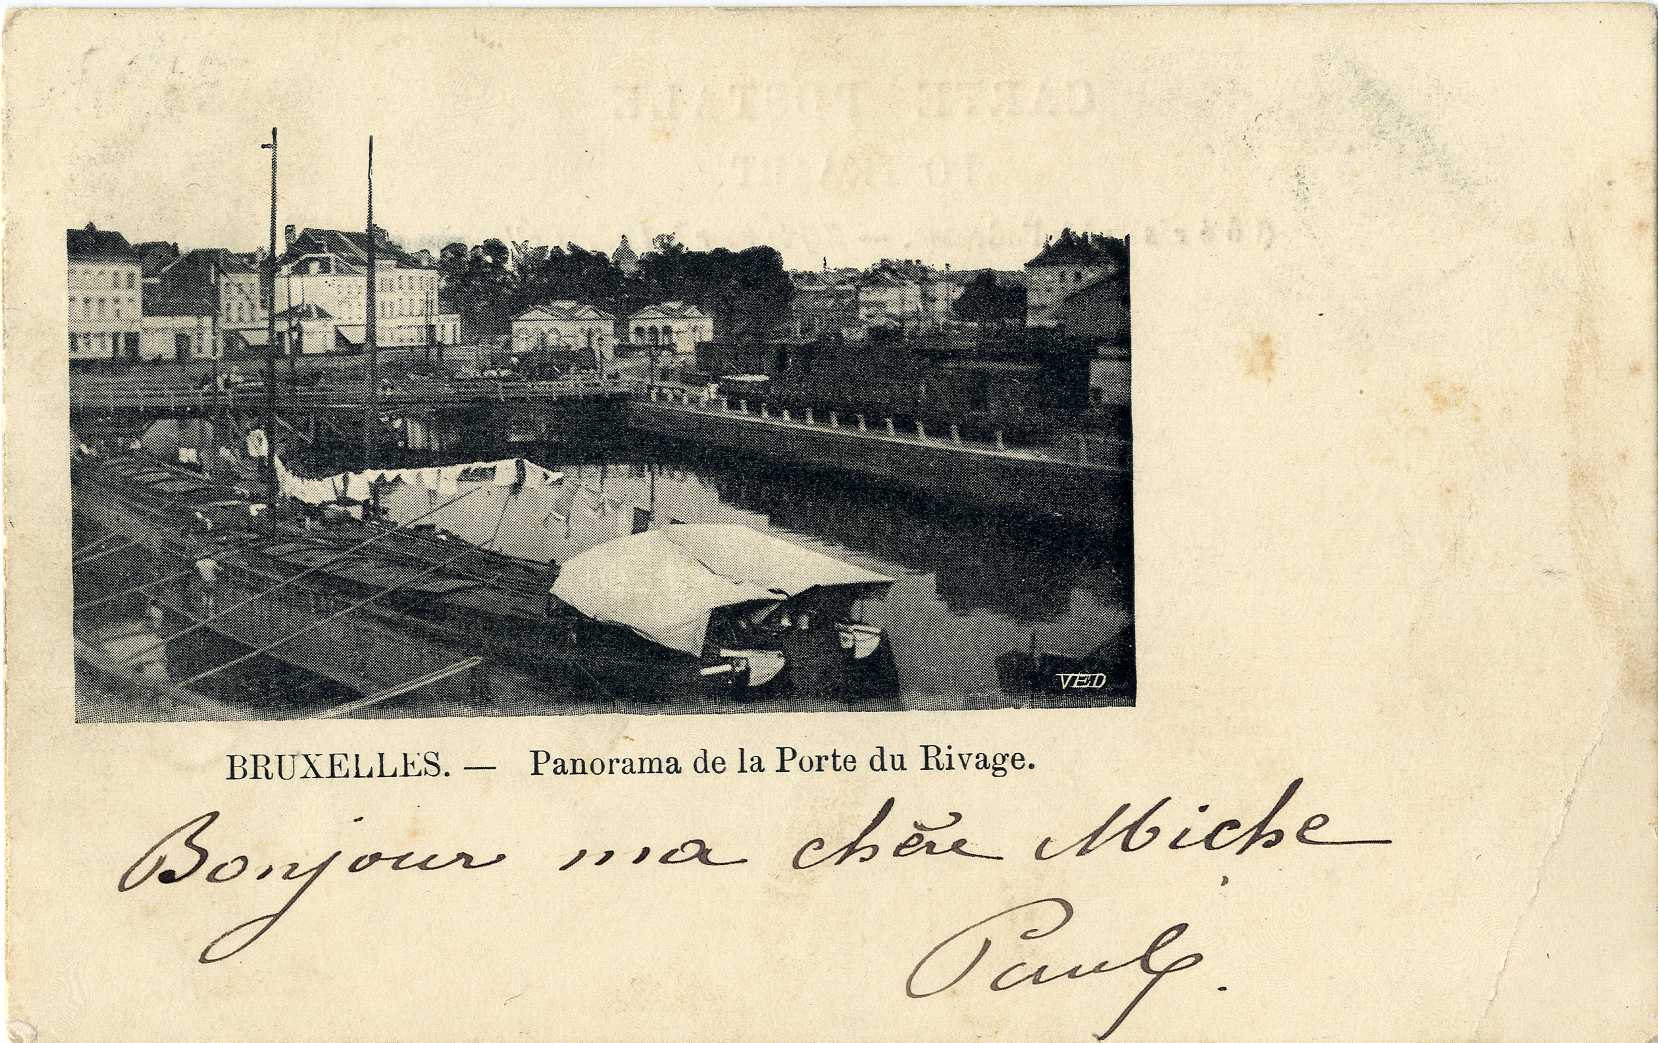 CARTE POSTALE
VED
BRUXELLES. — Panorama de la Porte du Rivage.
Bonjour ma chère Miche
Paul.